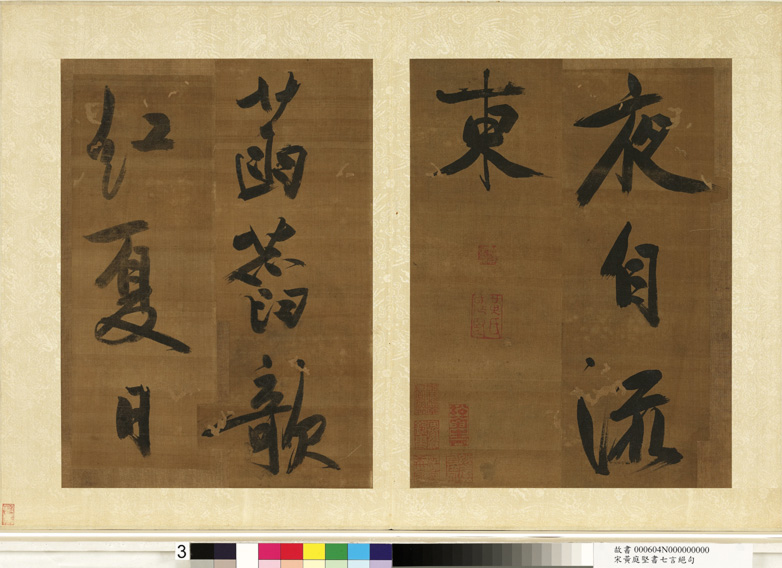 夜自流
東
菡萏欹
紅夏日
3
故書 000604N000000000
宋黃庭堅書七言絕句